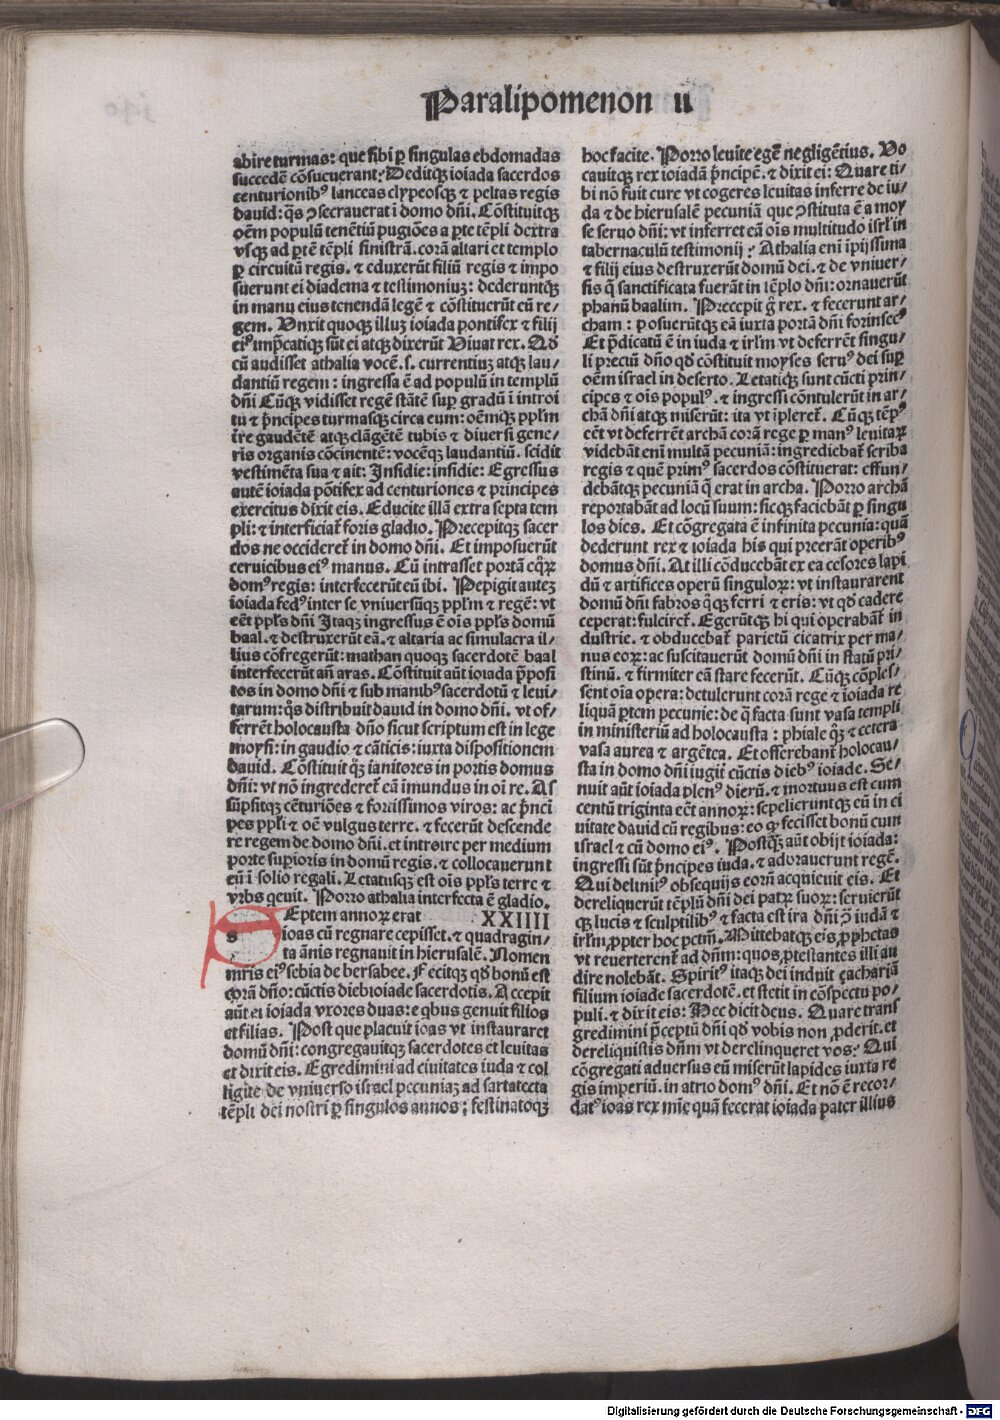 Paralipomenon ii
abire turmas: que sibi ꝑ singulas ebdomadas
succedẽ cõsueuerant: Deditqꝫ ioiada sacerdos
centurionibꝰ lanceas clypeosqꝫ ⁊ peltas regis
dauid: q̃s ꝯsecrauerat ĩ domo dñi. Cõstituitqꝫ
oẽm populũ tenẽtiũ pugiões a ꝑte tẽpli dextra
vsqꝫ ad ꝑtẽ tẽpli sinistrã. corã altari et templo
ꝑ circuitũ regis. ⁊ eduxerũt filiũ regis ⁊ impo
suerunt ei diadema ⁊ testimoniuꝫ: dederuntqꝫ
in manu eius tenendã legẽ ⁊ cõstituerũt eũ re⸗
gem. Vnxit quoqꝫ illuꝫ ioiada pontifex ⁊ filij
eiꝰ imp̃catiqꝫ sũt ei atqꝫ dixerũt Viuat rex. Qd̃
cũ audisset athalia vocẽ .s. currentiuꝫ atqꝫ lau⸗
dantiũ regem: ingressa ẽ ad populũ in templũ
dñi Cũqꝫ vidisset regẽ stãtẽ suꝑ gradũ ĩ introi
tu ⁊ p̃ncipes turmasqꝫ circa eum: oẽmqꝫ pp̃lm
t̃re gaudẽtẽ atqꝫ clãgẽtẽ tubis ⁊ diuersi gene⸗
ris organis cõcinentẽ: vocẽqꝫ laudantiũ. scidit
vestimẽta sua ⁊ ait: Insidie: insidie: Egressus
autẽ ioiada põtifex ad centuriones ⁊ principes
exercitus dixit eis. Educite illã extra septa tem
pli: ⁊ interficiat̃ foris gladio. Precepitqꝫ sacer
dos ne occideret̃ in domo dñi. Et imposuerũt
ceruicibus eiꝰ manus. Cũ intrasset portã eq̃ꝝ
domꝰ regis: interfecerũt eũ ibi. Pepigit auteꝫ
ioiada fedꝰ inter se vniuersũqꝫ pp̃lm ⁊ regẽ: vt
eẽt pp̃ls dñi Itaqꝫ ingressus ẽ ois pp̃ls domũ
baal. ⁊ destruxerũt eã. ⁊ altaria ac simulacra il⸗
lius cõfregerũt: mathan quoqꝫ sacerdotẽ baal
interfecerũt añ aras. Cõstituit aũt ioiada p̃posi
tos in domo dñi ⁊ sub manibꝰ sacerdotũ ⁊ leui⸗
tarum: q̃s distribuit dauid in domo dñi. vt of⸗
ferrẽt holocausta dño sicut scriptum est in lege
moysi: in gaudio ⁊ cãticis: iuxta dispositionem
dauid. Cõstituit q̃ꝫ ianitores in portis domus
dñi: vt nõ ingrederet̃ eã imundus in oi re. As
sũpsitqꝫ cẽturiões ⁊ fortissimos viros: ac p̃nci
pes pp̃li ⁊ oẽ vulgus terre. ⁊ fecerũt descende
re regem de domo dñi. et introire per medium
porte suꝑioris in domũ regis. ⁊ collocauerunt
eũ ĩ solio regali. Letatusqꝫ est ois pp̃ls terre ⁊
vrbs q̃euit. Porro athalia interfecta ẽ gladio.
s Eptem annoꝝ erat XXIIII
ioas cũ regnare cepisset. ⁊ quadragin⸗
ta ãnis regnauit in hierusalẽ. Nomen
mris eiꝰ sebia de bersabee. Fecitqꝫ qd̃ bonũ est
corã dño: cũctis dieb ioiade sacerdotis. Accepit
aũt ei ioiada vxores duas: e qbus genuit filios
et filias. Post que placuit ioas vt instauraret
domũ dñi: congregauitqꝫ sacerdotes et leuitas
et dixit eis. Egredimini ad ciuitates iuda ⁊ col
ligite de vniuerso israel pecuniaꝫ ad sartatecta
tẽpli dei nostri ꝑ singulos annos: festinatoqꝫ
hoc facite. Porro leuite egẽ negligẽtius. Vo
cauitqꝫ rex ioiadã p̃ncipẽ. ⁊ dixit ei: Quare ti⸗
bi nõ fuit cure vt cogeres leuitas inferre de iu⸗
da ⁊ de hierusalẽ pecuniã que ꝯstituta ẽ a moy
se seruo dñi: vt inferret eã ois multitudo isrl̃ in
tabernaculũ testimonij: Athalia enĩ ĩpijssima
⁊ filij eius destruxerũt domũ dei. ⁊ de vniuer⸗
sis q̃ sanctificata fuerãt in tẽplo dñi: ornauerũt
phanũ baalim. Precepit g̃ rex. ⁊ fecerunt ar⸗
cham: posuerũtqꝫ eã iuxta portã dñi forinsecꝰ
Et p̃dicatũ ẽ in iuda ⁊ irl̃m vt deferrẽt singu⸗
li preciũ dño qd̃ cõstituit moyses seruꝰ dei suꝑ
oẽm israel in deserto. Letatiqꝫ sunt cũcti prin⸗
cipes ⁊ ois populꝰ. ⁊ ingressi cõtulerũt in ar⸗
chã dñi atqꝫ miserũt: ita vt ĩpleret̃. Cũqꝫ tẽpꝰ
eẽt vt deferrẽt archã corã rege ꝑ manꝰ leuitaꝝ
videbãt enĩ multã pecuniã: ingrediebat̃ scriba
regis ⁊ quẽ primꝰ sacerdos cõstituerat: effun⸗
debãtqꝫ pecuniã q̃ erat in archa. Porro archã
reportabãt ad locũ suum: sicqꝫ faciebãt ꝑ singu
los dies. Et cõgregata ẽ infinita pecunia: quã
dederunt rex ⁊ ioiada his qui preerãt operibꝰ
domus dñi. At illi cõducebãt ex ea cesores lapi
dũ ⁊ artifices operũ singuloꝝ: vt instaurarent
domũ dñi fabros q̃qꝫ ferri ⁊ eris: vt qd̃ cadere
ceperat: fulciret̃. Egerũtqꝫ hi qui operabãt̃ in
dustrie. ⁊ obducebat̃ parietũ cicatrix per ma⸗
nus eoꝝ: ac suscitauerũt domũ dñi in statũ pri⸗
stinũ. ⁊ firmiter eã stare fecerũt. Cũqꝫ cõples⸗
sent oĩa opera: detulerunt corã rege ⁊ ioiada re
liquã ꝑtem pecunie: de q̃ facta sunt vasa templi
in ministeriũ ad holocausta: phiale q̃ꝫ ⁊ cetera
vasa aurea ⁊ argẽtea. Et offerebant̃ holocau⸗
sta in domo dñi iugit̃ cũctis diebꝰ ioiade. Se⸗
nuit aũt ioiada plenꝰ dierũ. ⁊ mortuus est cum
centũ triginta eẽt annoꝝ: sepelieruntqꝫ eũ in ci
uitate dauid cũ regibus: eo ꝙ fecisset bonũ cum
israel ⁊ cũ domo eiꝰ. Postqꝫ aũt obijt ioiada:
ingressi sũt p̃ncipes iuda. ⁊ adorauerunt regẽ.
Qui delinitꝰ obsequijs eorũ acquieuit eis. Et
dereliquerũt tẽplũ dñi dei patꝝ suoꝝ: seruierũt
qꝫ lucis ⁊ sculptilibꝰ ⁊ facta est ira dñi ꝯ̃ iudã ⁊
irl̃m ꝓpter hoc pctm̃. Mittebatqꝫ eis ꝓphetas
vt reuerterent̃ ad dñm: quos ꝓtestantes illi au
dire nolebãt. Spiritꝰ itaqꝫ dei induit çachariã
filium ioiade sacerdotẽ. et stetit in cõspectu po⸗
puli. ⁊ dixit eis: Hec dicit deus. Quare trans
gredimini p̃ceptũ dñi qd̃ vobis non ꝓderit. et
dereliquistis dñm vt derelinqueret vos: Qui
cõgregati aduersus eũ miserũt lapides iuxta re
gis imperiũ. in atrio domꝰ dñi. Et nõ ẽ recor⸗
datꝰ ioas rex mĩe quã fecerat ioiada pater illius
Digitalisierung gefördert durch die Deutsche Forschungsgemeinschaft - DFG